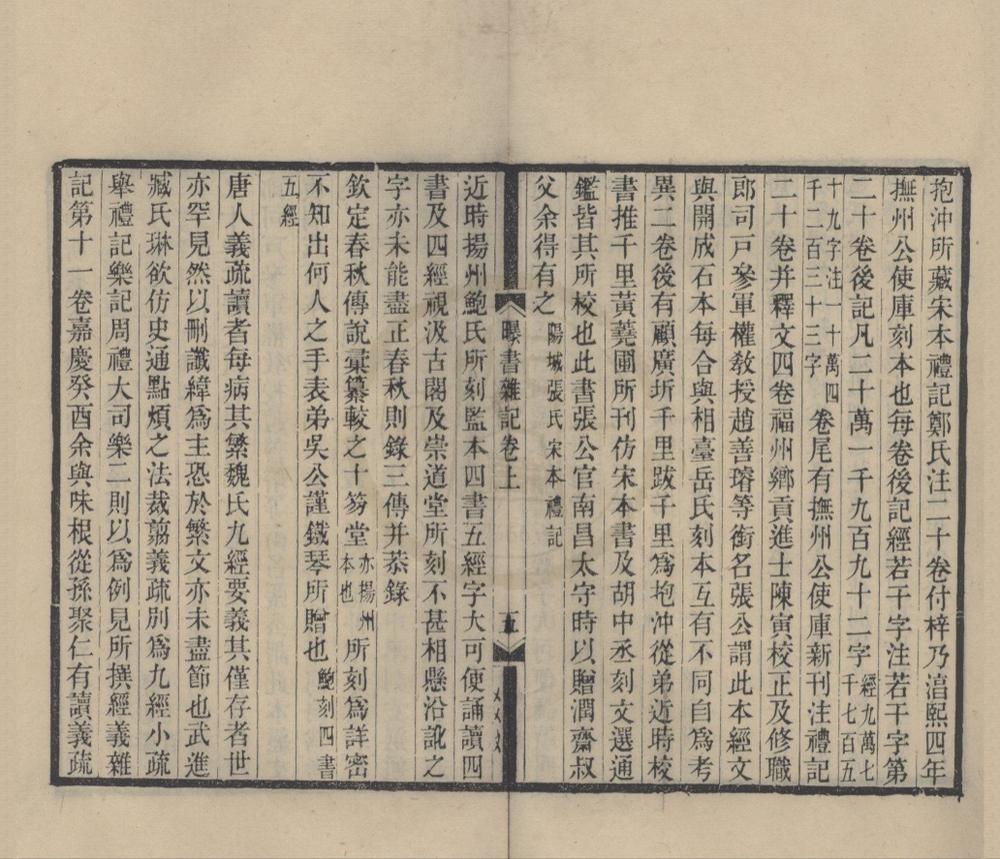 抱沖所藏宋本禮記鄭氏注二十卷付梓乃淳熙四年
撫州公使庫刻本也每卷後記經若干字注若干字第
二十卷後記凡二十萬一千九百九十二字經九萬七千七百五
十九字注一十萬四千二百三十三字卷尾有撫州公使庫新刊注禮記
二十卷并釋文四卷福州鄉貢進士陳寅校正及修職
郎司戸參軍權敎授趙善璿等銜名張公謂此本經文
與開成石本每合與相臺岳氏刻本互有不同自為考
異二卷後有顧廣圻千里跋千里為抱沖從弟近時校
書推千里黃蕘圃所刊仿宋本書及胡中丞刻文選通
鑑皆其所校也此書張公官南昌太守時以贈潤齋叔
父余得有之陽城張氏宋本禮記
曝書雜記卷上
五
近時揚州鮑氏所刻監本四書五經字大可便誦讀四
書及四經視汲古閣及崇道堂所刻不甚相懸沿訛之
字亦未能盡正春秋則錄三傳并恭錄
欽定春秋傳說彙纂較之十笏堂亦揚州本也所刻為詳密
不知出何人之手表弟吳公謹鐵琴所贈也鮑刻四書
五經
唐人義疏讀者每病其繁魏氏九經要義其僅存者世
亦罕見然以刪讖緯為主恐於繁文亦未盡節也武進
臧氏琳欲仿史通點煩之法裁翦義疏別為九經小疏
舉禮記樂記周禮大司樂二則以為例見所撰經義雜
記第十一卷嘉慶癸酉余與味根從孫聚仁有讀義疏